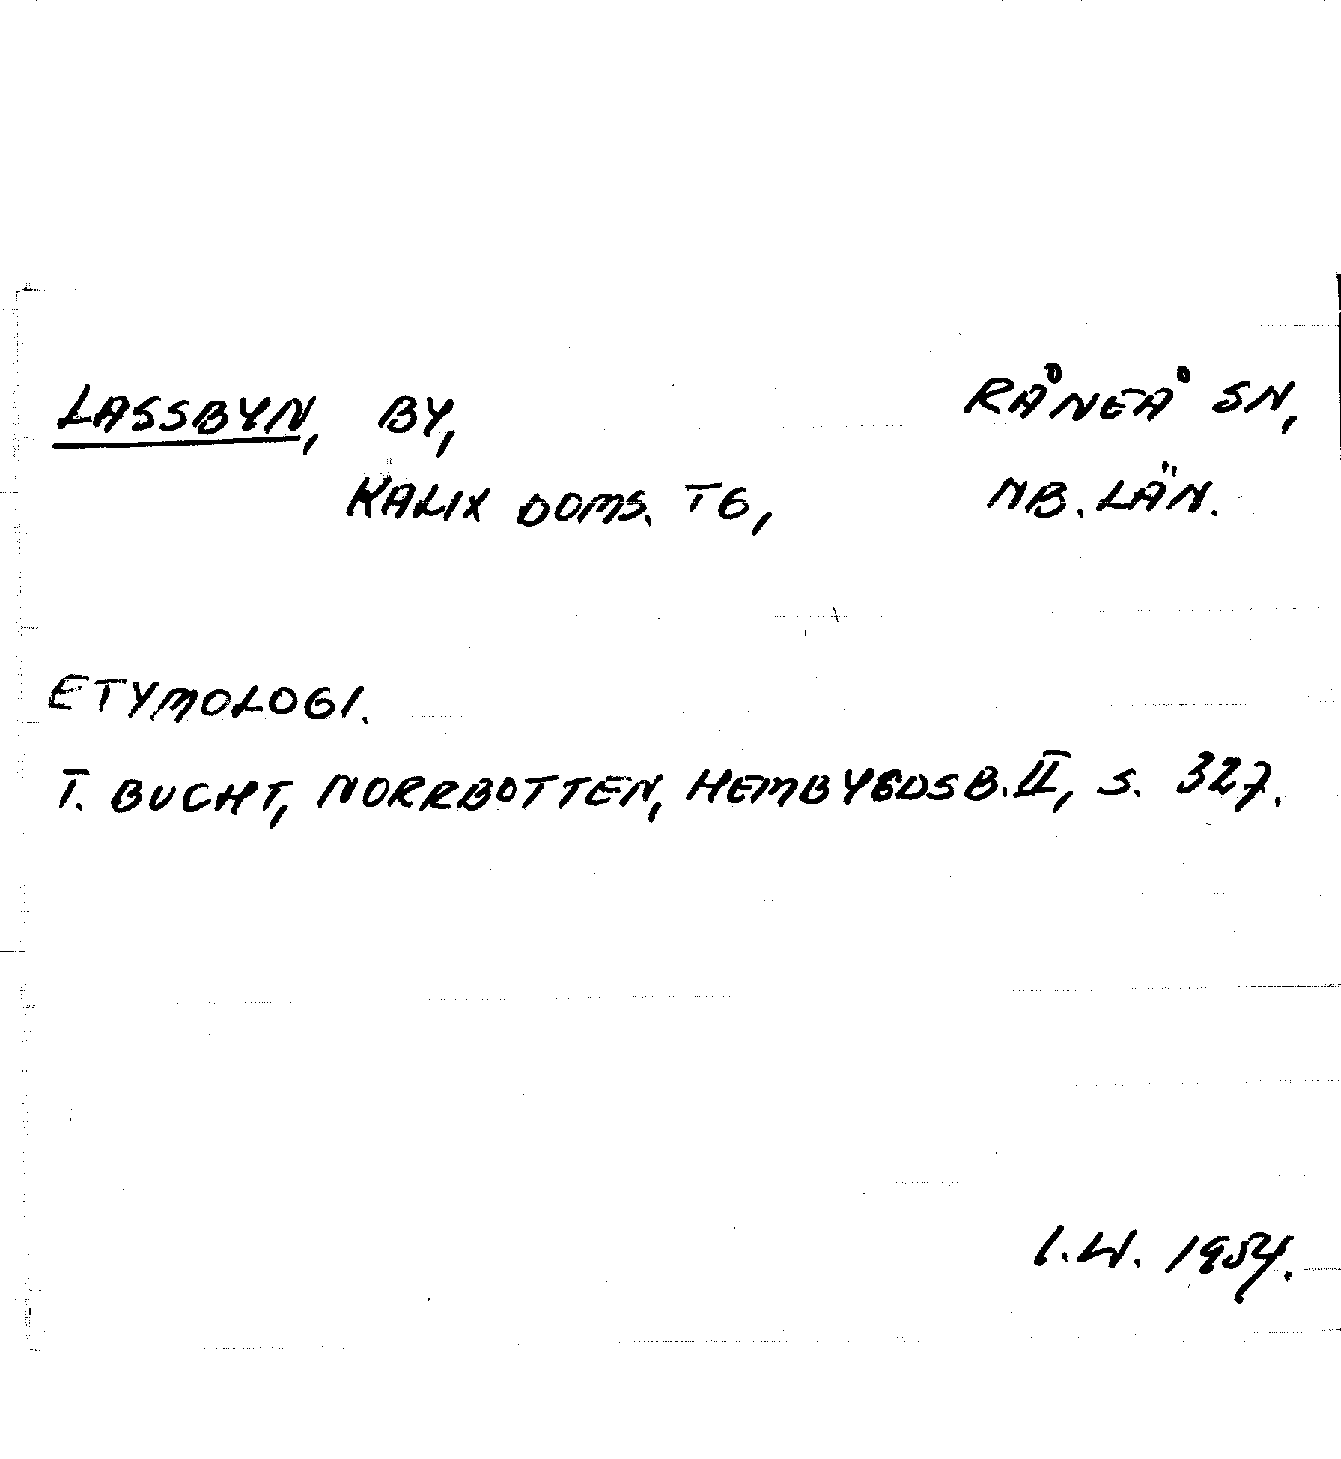 LASSBYN, BY, RÅNEÅ SN,
KALIX DOMS. TG, NB. LÄN.
ETYMOLOGI.
T. BUCHT, NORRBOTTEN, HEMBYGDSB. II, S. 327.
I.W. 1954.